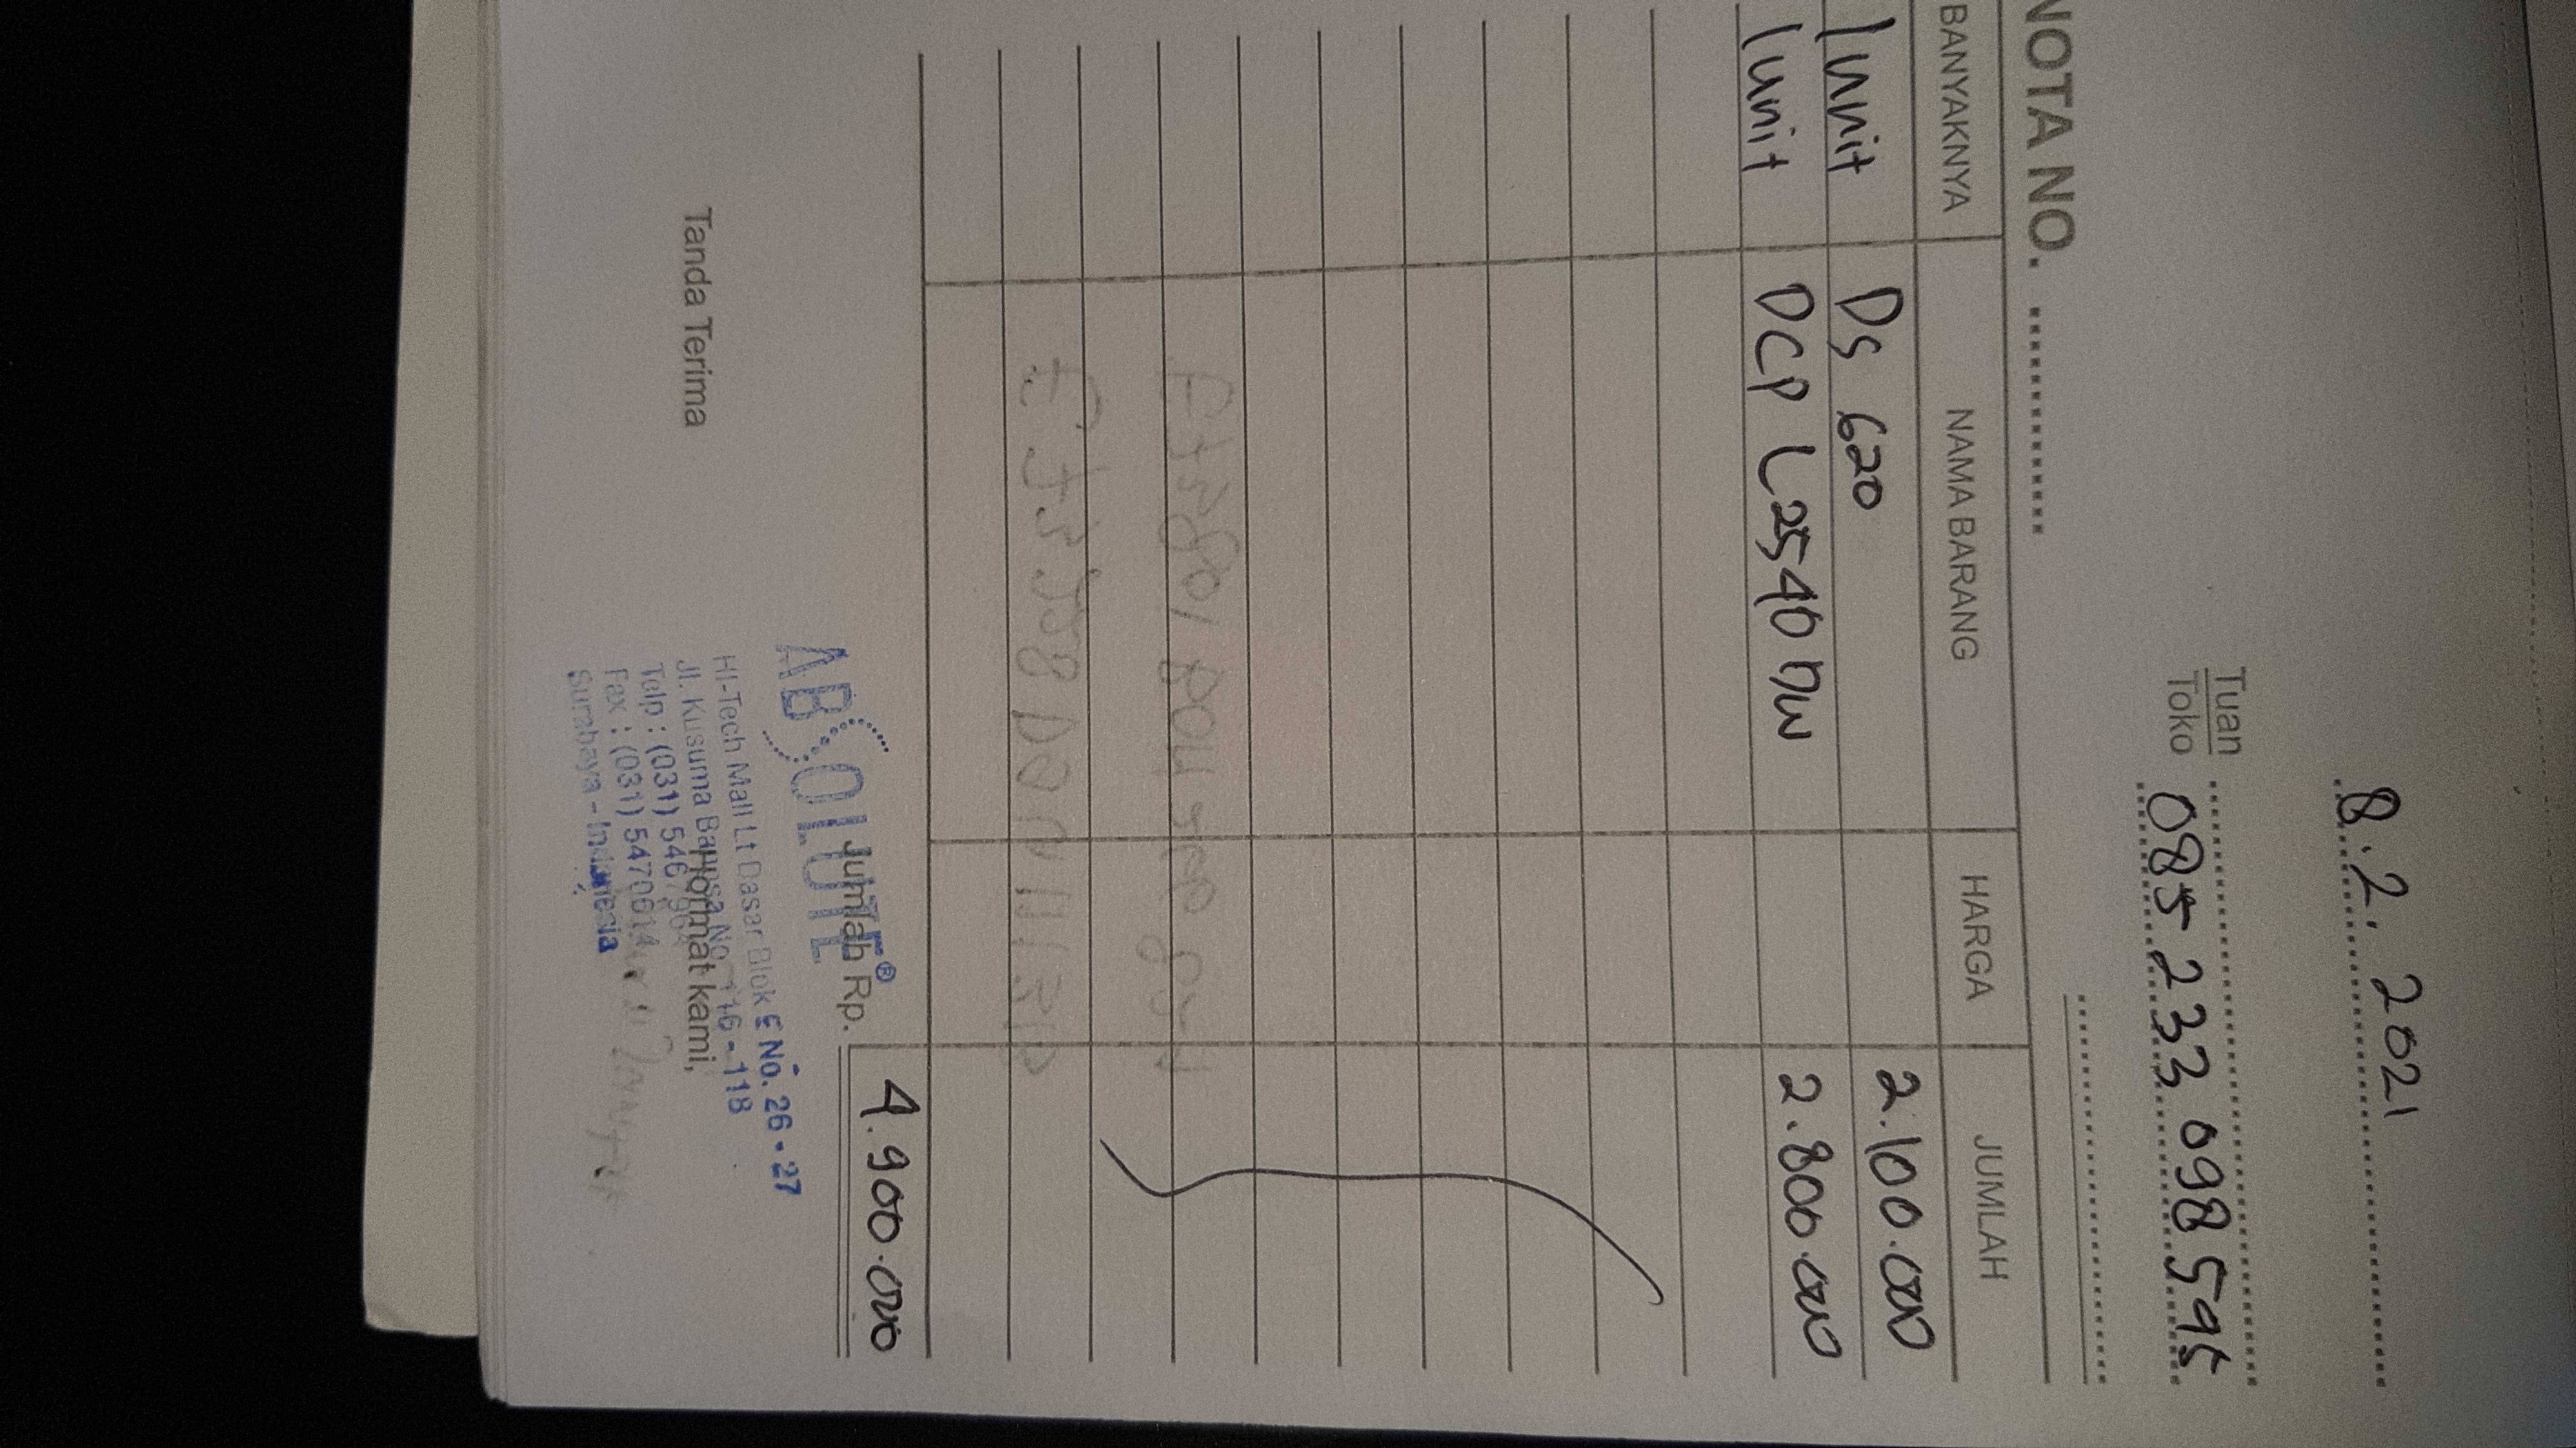 8.2.2021
Tuan
Toko 085 233 098 595
NOTA NO.
BANYAKNYA NAMA BARANG HARGA JUMLAH
1 unit DS 620 2.100.000
1 unit DCP L2540 DW 2.800.000
Jumlah Rp. 4.900.000
ABSOLUTE®
HI-Tech Mall Lt Dasar Blok E No. 26 - 27
Jl. Kusuma Bangsa No. 116 - 118
Tanda Terima Hormat kami,
Telp : (031)
Fax : (031)
Surabaya - Indonesia